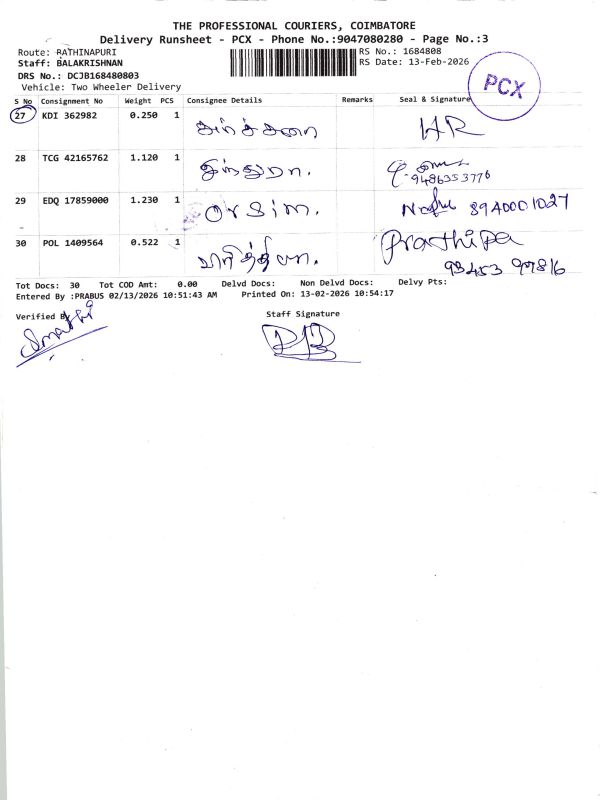 THE PROFESSIONAL COURIERS, COIMBATORE
Delivery Runsheet - PCX - Phone No.:9047080280 - Page No.:3
Route: RATHINAPURI
RS No.: 1684808
Staff: BALAKRISHNAN
RS Date: 13-Feb-2026
DRS No.: DCJB168480803
Vehicle: Two Wheeler Delivery
PCX
S No Consignment No Weight PCS Consignee Details Remarks Seal & Signature
27 KDI 362982 0.250 1 HR
28 TCG 42165762 1.120 1
9486353776
29 EDQ 17859000 1.230 1
30 POL 1409564 0.522 1 Prarthipa
93453 97816
Tot Docs: 30 Tot COD Amt: 0.00 Delvd Docs: Non Delvd Docs: Delvy Pts:
Entered By :PRABUS 02/13/2026 10:51:43 AM Printed On: 13-02-2026 10:54:17
Verified By
Staff Signature